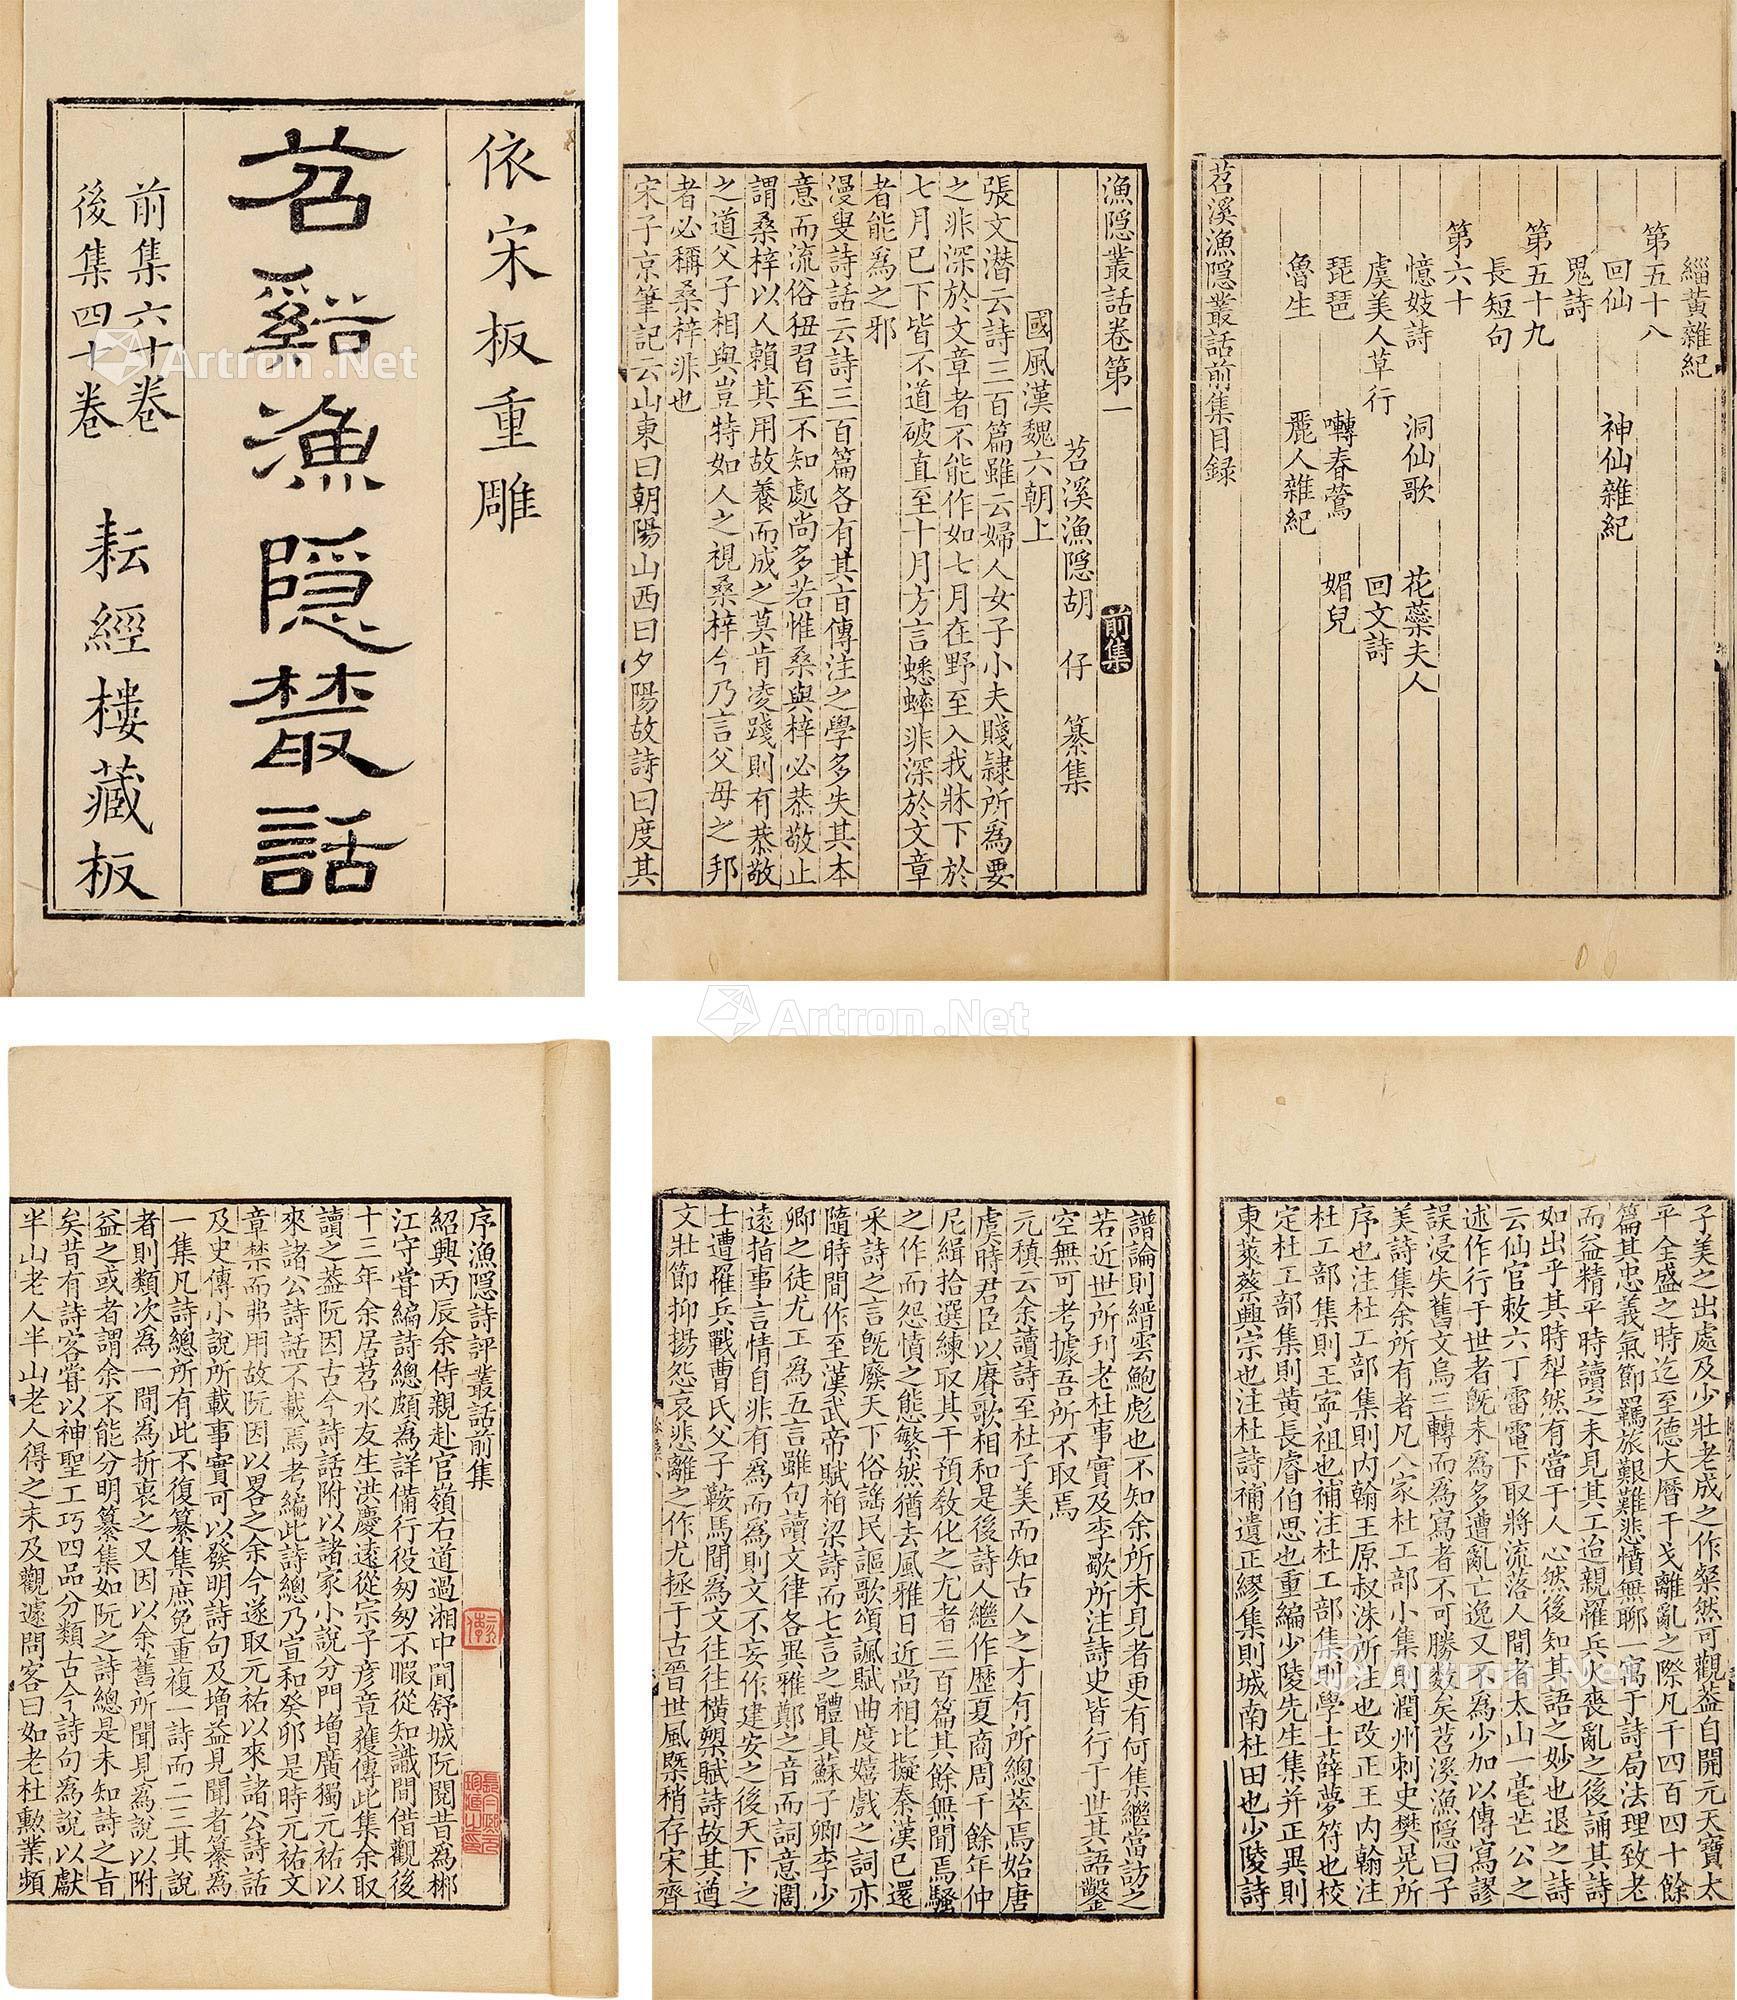 依宋板重雕
苕谿漁隱叢話
前集六十卷
後集四十卷
耘經樓藏板
緇黃雜紀
第五十八
回仙 神仙雜紀
鬼詩
第五十九
長短句
第六十
憶妓詩 洞仙歌 花蘂夫人
虞美人草行 回文詩
琵琶 囀春鶯 媚兒
魯生 麗人雜紀
苕溪漁隱叢話前集目録
漁隱叢話卷第一 前集
苕溪漁隱胡 仔 纂集
國風漢魏六朝上
張文潛云詩三百篇雖云婦人女子小夫賤隷所爲要
之非深於文章者不能作如七月在野至入我牀下於
七月已下皆不道破直至十月方言蟋蟀非深於文章
者能爲之邪
漫叟詩話云詩三百篇各有其旨傳注之學多失其本
意而流俗狃習至不知處尚多若惟桑與梓必恭敬止
謂桑梓以人賴其用故養而成之莫肯凌踐則有恭敬
之道父子相與豈特如人之視桑梓今乃言父母之邦
者必稱桑梓非也
宋子京筆記云山東曰朝陽山西曰夕陽故詩曰度其
序漁隱詩評叢話前集
紹興丙辰余侍親赴官嶺右道過湘中聞舒城阮閱昔為郴
江守嘗編詩總頗為詳備行役匆匆不暇從知識間借觀後
十三年余居苕水友生洪慶遠從宗子彦章獲傳此集余取
讀之葢阮因古今詩話附以諸家小說分門增廣獨元祐以
來諸公詩話不載焉考編此詩總乃宣和癸卯是時元祐文
章禁而弗用故阮因以畧之余今遂取元祐以來諸公詩話
及史傳小說所載事實可以發明詩句及增益見聞者纂為
一集凡詩總所有此不復纂集庶免重複一詩而二三其說
者則類次為一間為折衷之又因以余舊所聞見為說以附
益之或者謂余不能分明纂集如阮之詩總是未知詩之旨
矣昔有詩客嘗以神聖工巧四品分類古今詩句為說以獻
半山老人半山老人得之未及觀遽問客曰如老杜勲業頻
子美之出處及少壯老成之作粲然可觀葢自開元天寶太
平全盛之時迄至德大曆干戈離亂之際凡千四百四十餘
篇其忠義氣節羈旅艱難悲憤無聊一寓于詩局法理致老
而益精平時讀之未見其工迨親罹兵火喪亂之後誦其詩
如出乎其時犁然有當于人心然後知其語之妙也退之詩
云仙官敕六丁雷電下取將流落人間者太山一毫芒公之
述作行于世者既未為多遭亂亡逸又不為少加以傳寫謬
誤浸失舊文烏三轉而為寫者不可勝數矣苕溪漁隱曰子
美詩集余所有者凡八家杜工部小集則潤州刺史樊晃所
序也注杜工部集則内翰王原叔洙所注也改正王内翰注
杜工部集則王寧祖也補注杜工部集則學士薛夢符也校
定杜工部集則黃長睿伯思也重編少陵先生集并正異則
東萊蔡興宗也注杜詩補遺正繆集則城南杜田也少陵詩
譜論則縉雲鮑彪也不知余所未見者更有何集繼當訪之
若近世所刊老杜事實及李歜所注詩史皆行于世其語鑿
空無可考據吾所不取焉
元稹云余讀詩至杜子美而知古人之才有所總萃焉始唐
虞時君臣以賡歌相和是後詩人繼作歴夏商周千餘年仲
尼緝拾選練取其干預敎化之尤者三百篇其餘無聞焉騷
之作而怨憤之態繁然猶去風雅日近尚相比擬秦漢已還
采詩之官既廢天下俗謡民謳歌頌諷賦曲度嬉戲之詞亦
隨時間作至漢武帝賦柏梁詩而七言之體具蘇子卿李少
卿之徒尤工為五言雖句讀文律各異雅鄭之音而詞意濶
遠指事言情自非有為而為則文不妄作建安之後天下之
士遭罹兵戰曹氏父子鞍馬間為文往往橫槊賦詩故其遒
文壯節抑揚怨哀悲離之作尤拯于古晉世風槩稍存宋齊
Artron.Net
Artron.Net
Artron.Net
Artron.Net